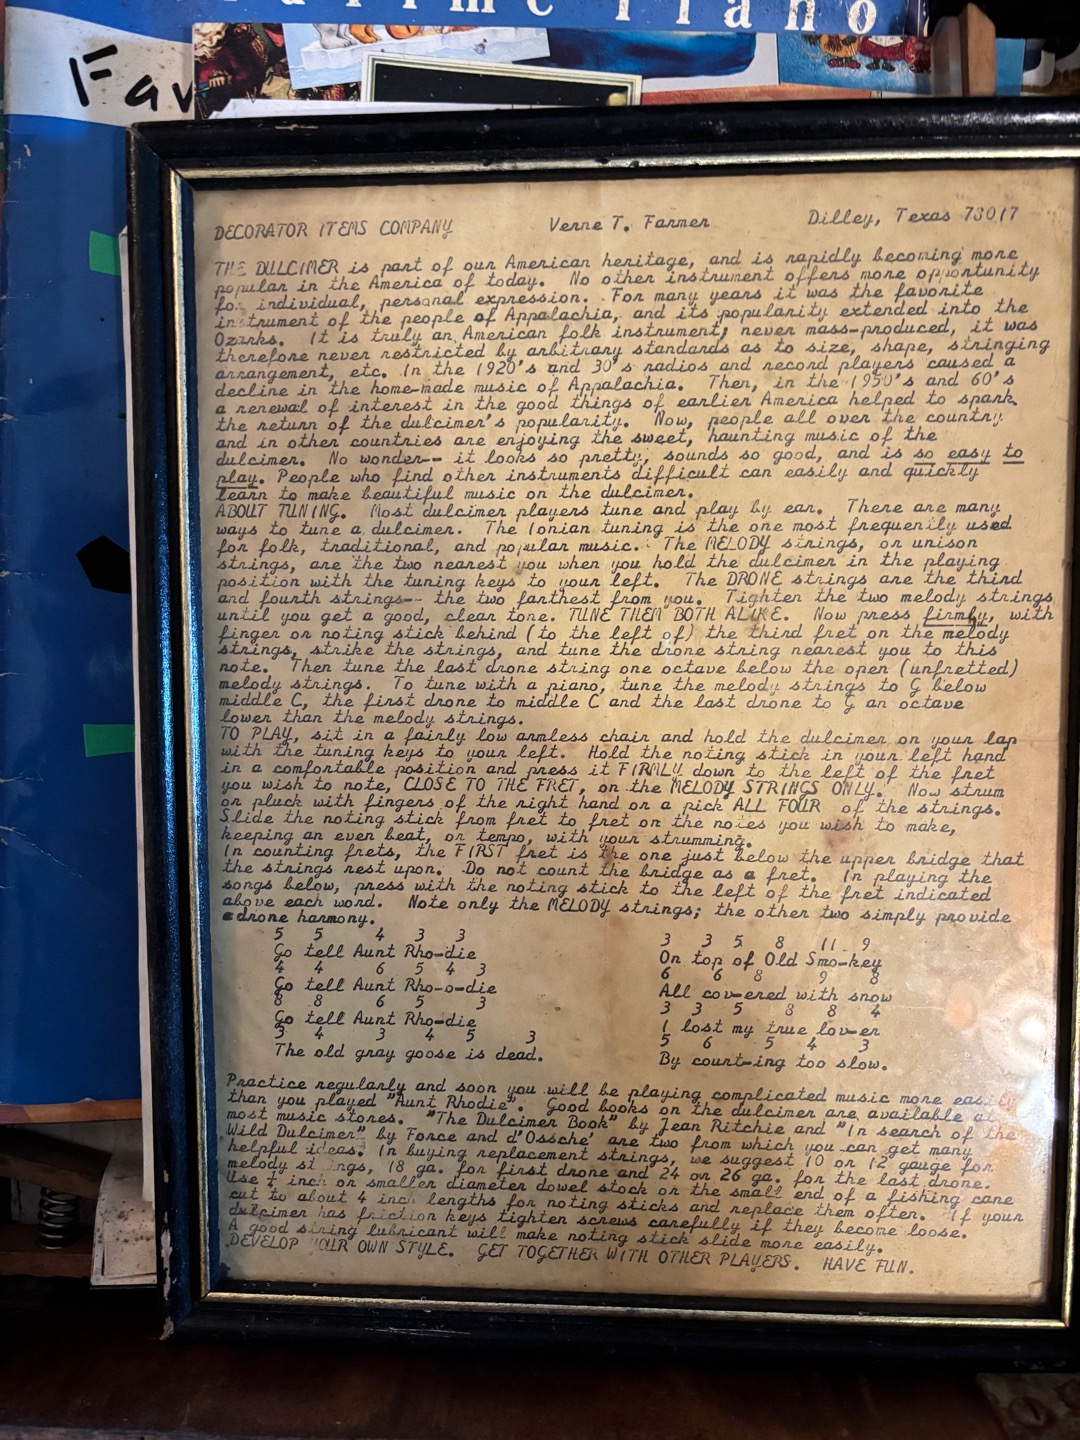 Fav
DECORATOR ITEMS COMPANY Verne T. Farmer Dilley, Texas 78017
THE DULCIMER is part of our American heritage, and is rapidly becoming more
popular in the America of today. No other instrument offers more opportunity
for individual, personal expression. For many years it was the favorite
instrument of the people of Appalachia, and its popularity extended into the
Ozarks. It is truly an American folk instrument, never mass-produced, it was
therefore never restricted by arbitrary standards as to size, shape, stringing
arrangement, etc. In the 1920's and 30's radios and record players caused a
decline in the home-made music of Appalachia. Then, in the 1950's and 60's
a renewal of interest in the good things of earlier America helped to spark
the return of the dulcimer's popularity. Now, people all over the country
and in other countries are enjoying the sweet, haunting music of the
dulcimer. No wonder-- it looks so pretty, sounds so good, and is so easy to
play. People who find other instruments difficult can easily and quickly
learn to make beautiful music on the dulcimer.
ABOUT TUNING. Most dulcimer players tune and play by ear. There are many
ways to tune a dulcimer. The Ionian tuning is the one most frequently used
for folk, traditional, and popular music. The MELODY strings, or unison
strings, are the two nearest you when you hold the dulcimer in the playing
position with the tuning keys to your left. The DRONE strings are the third
and fourth strings-- the two farthest from you. Tighten the two melody strings
until you get a good, clear tone. TUNE THEM BOTH ALIKE. Now press firmly, with
finger or noting stick behind (to the left of) the third fret on the melody
strings, strike the strings, and tune the drone string nearest you to this
note. Then tune the last drone string one octave below the open (unfretted)
melody strings. To tune with a piano, tune the melody strings to G below
middle C, the first drone to middle C and the last drone to G an octave
lower than the melody strings.
TO PLAY, sit in a fairly low armless chair and hold the dulcimer on your lap
with the tuning keys to your left. Hold the noting stick in your left hand
in a comfortable position and press it FIRMLY down to the left of the fret
you wish to note, CLOSE TO THE FRET, on the MELODY STRINGS ONLY. Now strum
or pluck with fingers of the right hand or a pick ALL FOUR of the strings.
Slide the noting stick from fret to fret on the notes you wish to make,
keeping an even beat, or tempo, with your strumming.
In counting frets, the FIRST fret is the one just below the upper bridge that
the strings rest upon. Do not count the bridge as a fret. In playing the
songs below, press with the noting stick to the left of the fret indicated
above each word. Note only the MELODY strings; the other two simply provide
drone harmony.
5 5 4 3 3
Go tell Aunt Rho-die
4 4 6 5 4 3
Go tell Aunt Rho-o-die
8 8 6 5 3
Go tell Aunt Rho-die
3 4 3 4 5 3
The old gray goose is dead.
3 3 5 8 11 9
On top of Old Smo-key
6 6 8 9 8
All cov-ered with snow
3 3 5 8 8 4
I lost my true lov-er
5 6 5 4 3
By count-ing too slow.
Practice regularly and soon you will be playing complicated music more easily
than you played "Aunt Rhodie". Good books on the dulcimer are available at
most music stores. "The Dulcimer Book" by Jean Ritchie and "In search of the
Wild Dulcimer" by Force and d'Ossche' are two from which you can get many
helpful ideas. In buying replacement strings, we suggest 10 or 12 gauge for
melody strings, 18 ga. for first drone and 24 or 26 ga. for the last drone.
Use inch or smaller diameter dowel stock or the small end of a fishing cane
cut to about 4 inch lengths for noting sticks and replace them often. If your
dulcimer has friction keys tighten screws carefully if they become loose.
A good string lubricant will make noting stick slide more easily.
DEVELOP YOUR OWN STYLE. GET TOGETHER WITH OTHER PLAYERS. HAVE FUN.